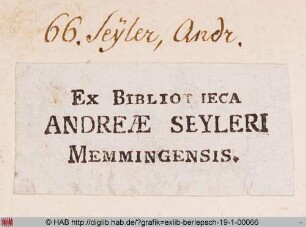 66. Seÿler, Andr.
EX BIBLIOTHECA
ANDREÆ SEYLERI
MEMMINGENSIS.
© HAB http://diglib.hab.de/?grafik=exlib-berlepsch-19-1-00066